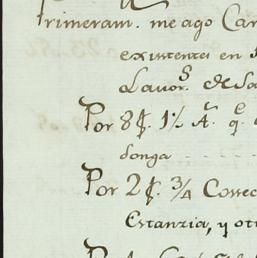 Primeram. me ago Car
existentes en
Lavor.s de Sa
Por 8 ₵. 1½ A.
donga - - - -
Por 2 ₵. ¾ Cosec
Estanzia, y ot